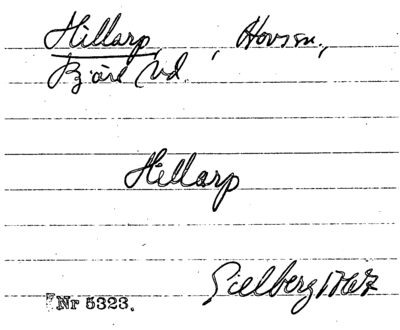 Hillarp, Hovs sn.,
Bjäre hd.
Hillarp
Gielberg 1767
Nr 5323.